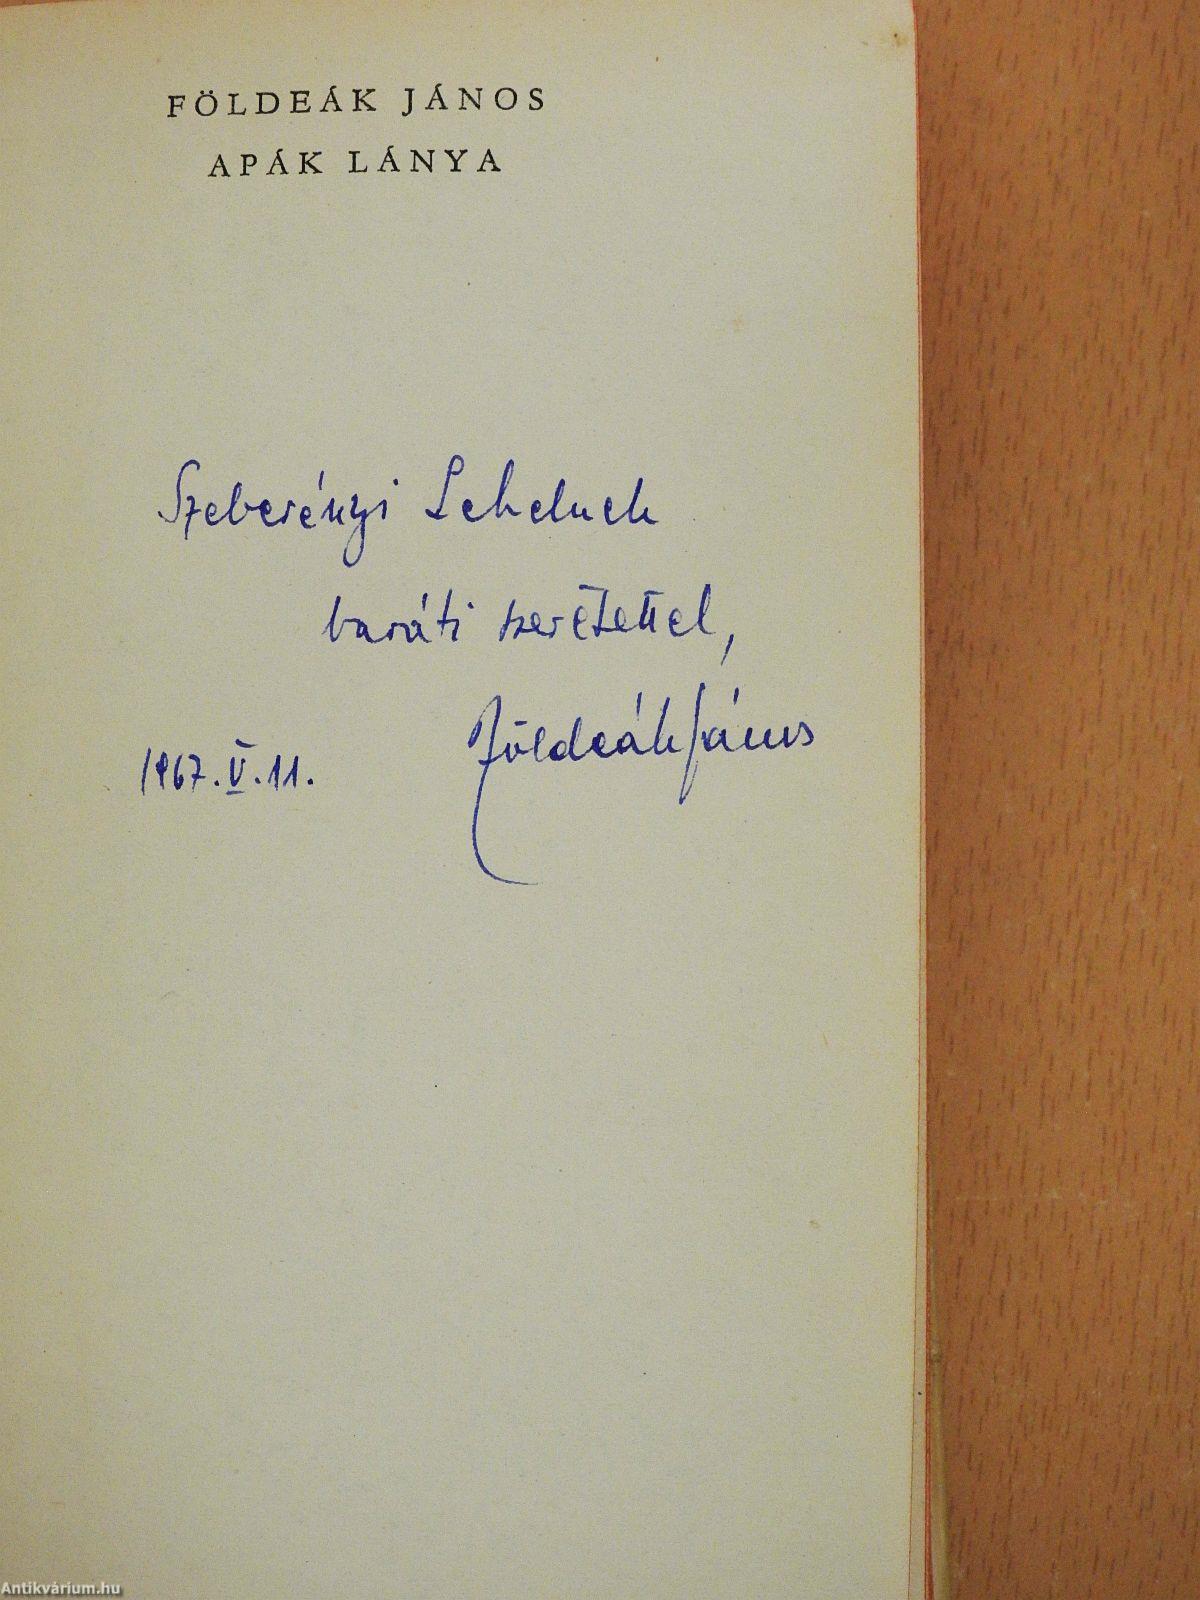 FÖLDEÁK JÁNOS
APÁK LÁNYA
Szeberényi Lehelnek
baráti szeretettel,
Földeák János
1967. V. 11.
Antikvárium.hu